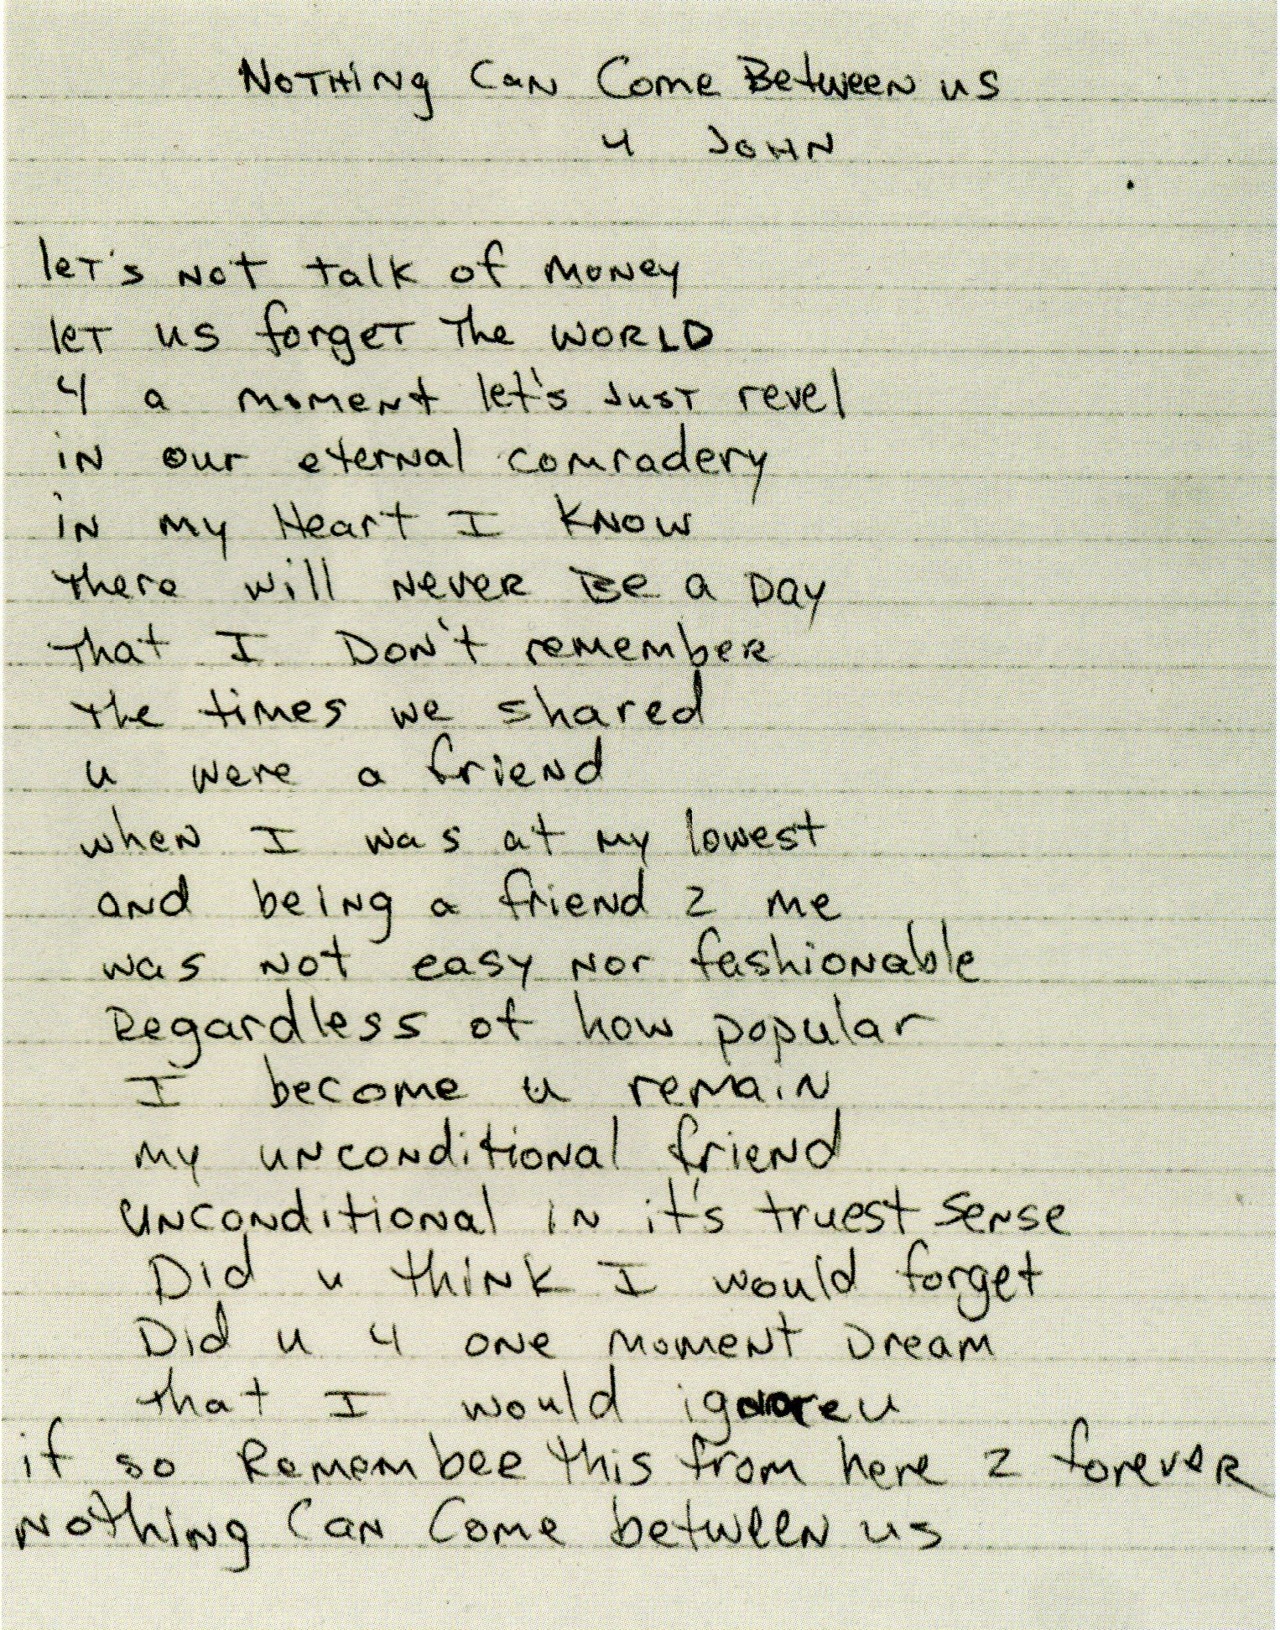 Nothing Can Come Between us
4 John
let's not talk of money
let us forget The WORLD
4 a moment let's Just revel
in our eternal comradery
in my Heart I know
there will never Be a Day
that I Don't remember
the times we shared
u were a friend
when I was at my lowest
and being a friend 2 me
was not easy nor fashionable
Regardless of how popular
I become u remain
my unconditional friend
unconditional in it's truest sense
Did u think I would forget
Did u 4 one moment Dream
that I would ignore u
if so Remember this from here 2 forever
nothing Can Come between us